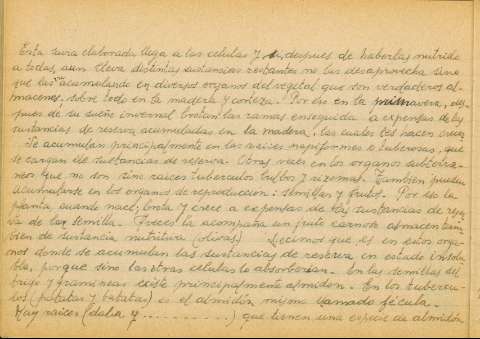 Esta savia elaborada llega a las células y si, despues de haberlas nutrido
a todas, aun lleva distintas sustancias restantes no las desaprovecha sino
que las va acumulando en diversos organos del vegetal que son verdaderos al-
macenes, sobre todo en la madera y corteza. Por eso en la primavera, des-
pues de su sueño invernal brotan las ramas enseguida a expensas de las
sustancias de reserva acumuladas en la madera, las cuales les hacen crecer
Se acumulan principalmente en las raices napiformes o tuberosas, que
se cargan de sustancias de reserva. Otras veces en los organos subterra-
neos que no son sino raices tuberculos bulbos y rizomas. Tambien pueden
acumularse en los organos de reproduccion: semillas y frutos. Por eso la
planta cuando nace, brota y crece a expensas de las sustancias de reser-
va de la semilla. A veces la acompaña un fruto carnoso almacen tam-
bien de sustancia nutritiva (olivas) Decimos que es en estos orga-
nos donde se acumulan las sustancias de reserva en estado insolu-
ble, porque sino las otras celulas lo absorberian. En las semillas del
trigo y gramineas existe principalmente almidon. En los tubercu-
los (patatas y batatas) es el almidón mismo llamado fécula.
Hay raices (dalia y ..........) que tienen una especie de almidón